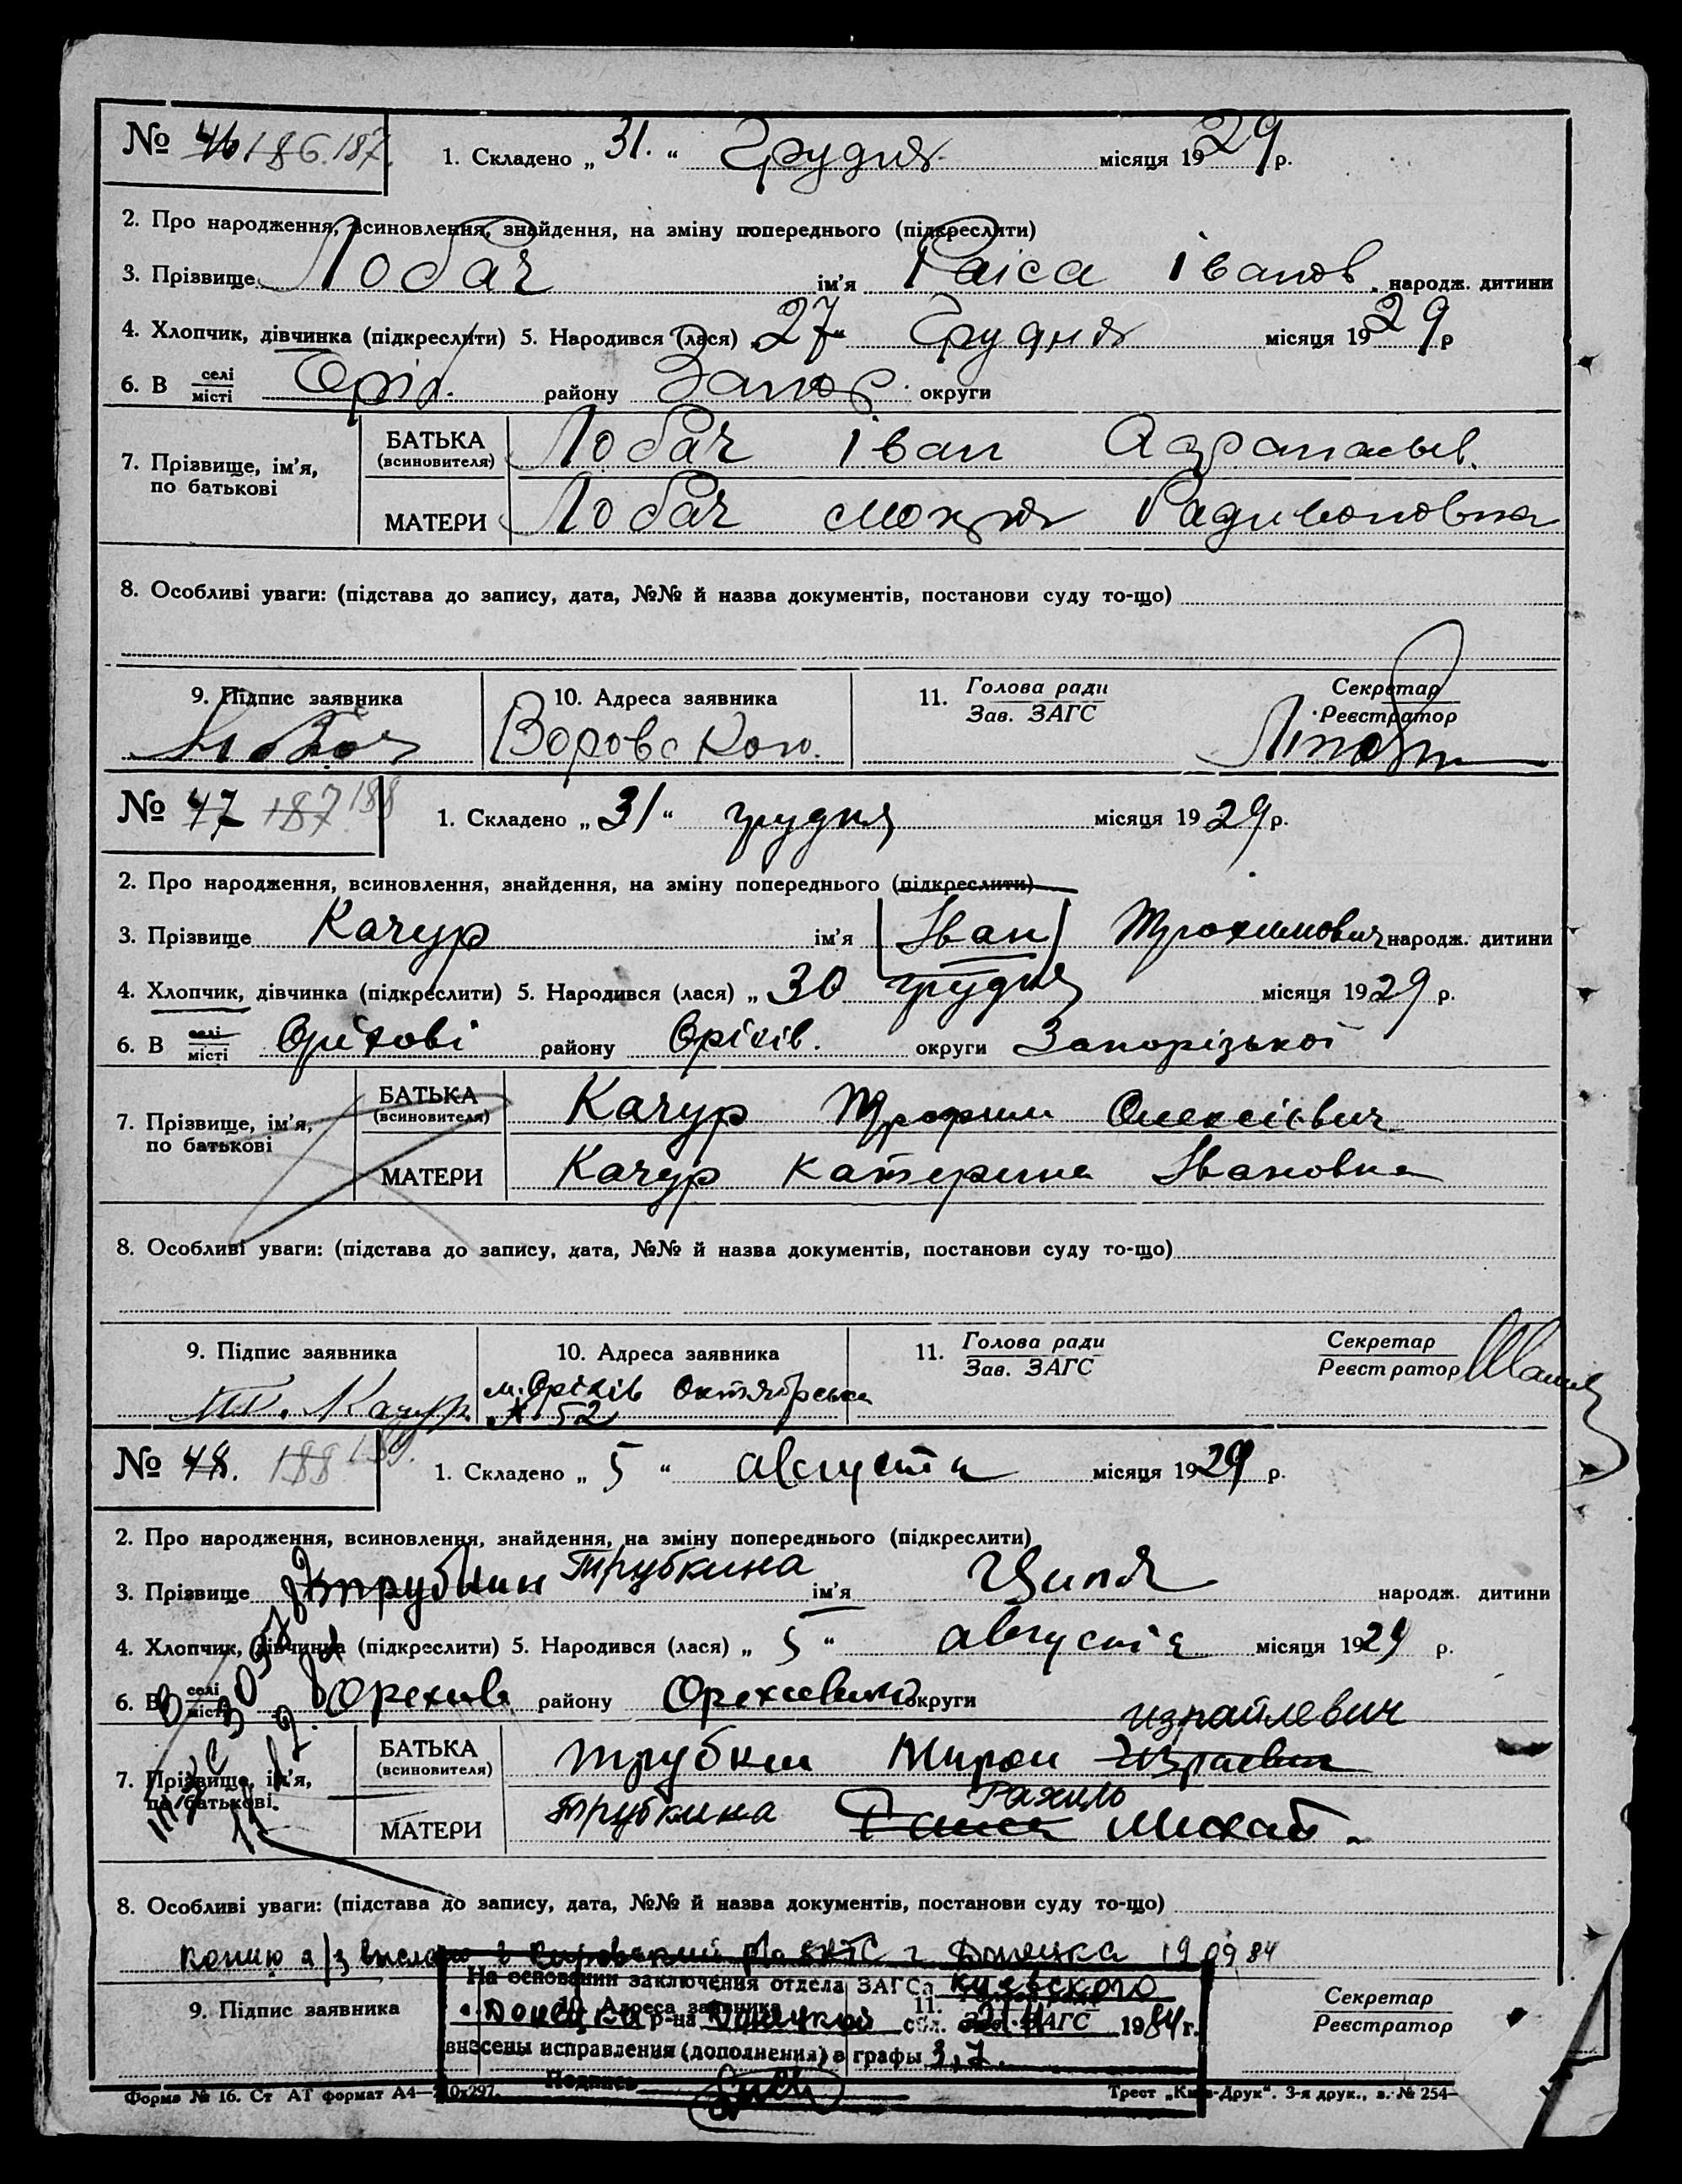 № 46 186. 187. 1. Складено „ 31. “ Грудня місяця 1929 р.
2. Про народження, всиновлення, знайдення, на зміну попереднього (підкреслити)
3. Прізвище Лобач ім'я Раіса Іванов. народж. дитини
4. Хлопчик, дівчинка (підкреслити) 5. Народився (лася) „ 27 “ Грудня місяця 1929 р
6. В селі місті Оріх. району Запор. округи
7. Прізвище, ім'я, по батькові
БАТЬКА (всиновителя) Лобач Іван
МАТЕРИ Лобач Мокря Радивоновна
8. Особливі уваги: (підстава до запису, дата, №№ й назва документів, постанови суду то-що)
9. Підпис заявника 10. Адреса заявника 11. Голова ради Зав. ЗАГС Секретар Реєстратор
Лобач Воровского.
№ 47 187 188 1. Складено „ 31 “ грудня місяця 1929 р.
2. Про народження, всиновлення, знайдення, на зміну попереднього (підкреслити)
3. Прізвище Качур ім'я Іван Трохимович народж. дитини
4. Хлопчик, дівчинка (підкреслити) 5. Народився (лася) „ 30 грудня місяця 1929 р.
6. В селі місті Оріхові району Оріхів. округи Запорізької
7. Прізвище, ім'я, по батькові
БАТЬКА (всиновителя) Качур Трофим Олексієвич
МАТЕРИ Качур Катерина Івановна
8. Особливі уваги: (підстава до запису, дата, №№ й назва документів, постанови суду то-що)
9. Підпис заявника 10. Адреса заявника 11. Голова ради Зав. ЗАГС Секретар Реєстратор
Т. Качур м. Оріхів Октябрська
№ 52
№ 48. 188 189. 1. Складено „ 5 “ августа місяця 1929 р.
2. Про народження, всиновлення, знайдення, на зміну попереднього (підкреслити)
3. Прізвище Трубкин Трубкина ім'я Ципа народж. дитини
4. Хлопчик, дівчинка (підкреслити) 5. Народився (лася) „ 5 “ августа місяця 1929 р.
6. В селі місті Орехив району округи
7. Прізвище, ім'я, по батькові
израйлевич
БАТЬКА (всиновителя) Трубкин Мирон
Рахиль
МАТЕРИ Трубкина
8. Особливі уваги: (підстава до запису, дата, №№ й назва документів, постанови суду то-що)
копию а/з выслано в г Донецка 19 09 84
На основании заключения отдела ЗАГСа киевского
9. Підпис заявника 10. Адреса заявника 11. Секретар Реєстратор
Донецка р-на Донецкой обл. 1984 г.
внесены исправления (дополнения) в графы 3,7.
Подпись
Форма № 16. Ст АТ формат А4— Трест „Київ-Друк“. 3-я друк., з. № 254—